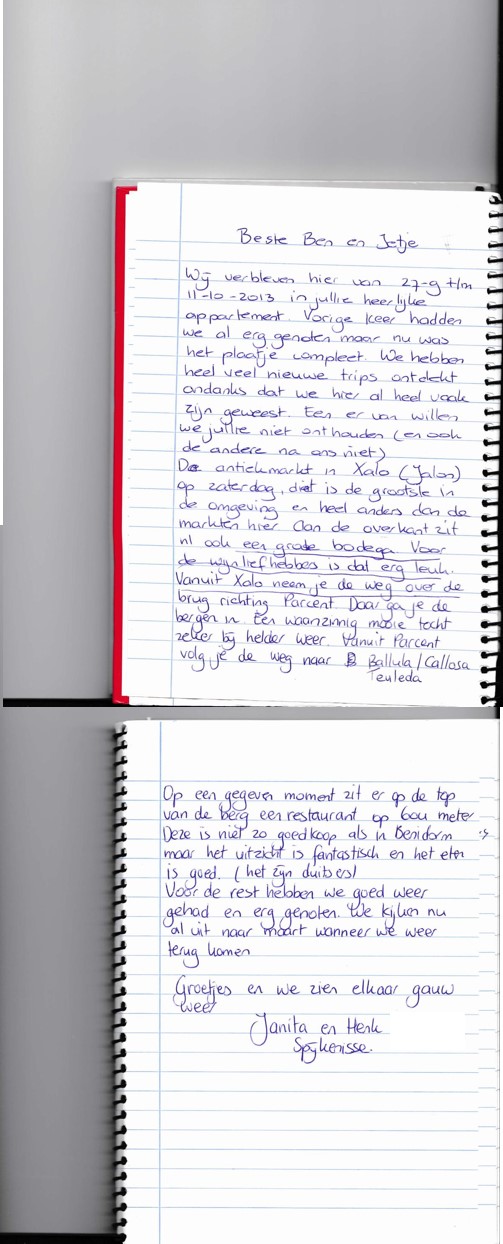 Beste Ben en Jetje
Wij verbleven hier van 27-9 t/m
11-10-2013 in jullie heerlijke
appartement. Vorige keer hadden
we al erg genoten maar nu was
het plaatje compleet. We hebben
heel veel nieuwe trips ontdekt
ondanks dat we hier al heel vaak
zijn geweest. Een er van willen
we jullie niet onthouden (en ook
de andere na ons niet)
De antiekmarkt in Xalo (Jalon)
op zaterdag, dit is de grootste in
de omgeving en heel anders dan de
markten hier Aan de overkant zit
nl ook een grote bodega. Voor
de wijnliefhebbers is dat erg leuk.
Vanuit Xalo neem je de weg over de
brug richting Parcent. Daar ga je de
bergen in. Een waanzinnig mooie tocht
zeker bij helder weer. Vanuit Parcent
volg je de weg naar Ballula / Callosa
Teuleda
Op een gegeven moment zit er op de top
van de berg een restaurant op 600 meter
Deze is niet zo goedkoop als in Benidorm
maar het uitzicht is fantastisch en het eten
is goed. (het zijn duitsers)
Voor de rest hebben we goed weer
gehad en erg genoten. We kijken nu
al uit naar maart wanneer we weer
terug komen
Groetjes en we zien elkaar gauw
weer
Janita en Henk
Spijkenisse.